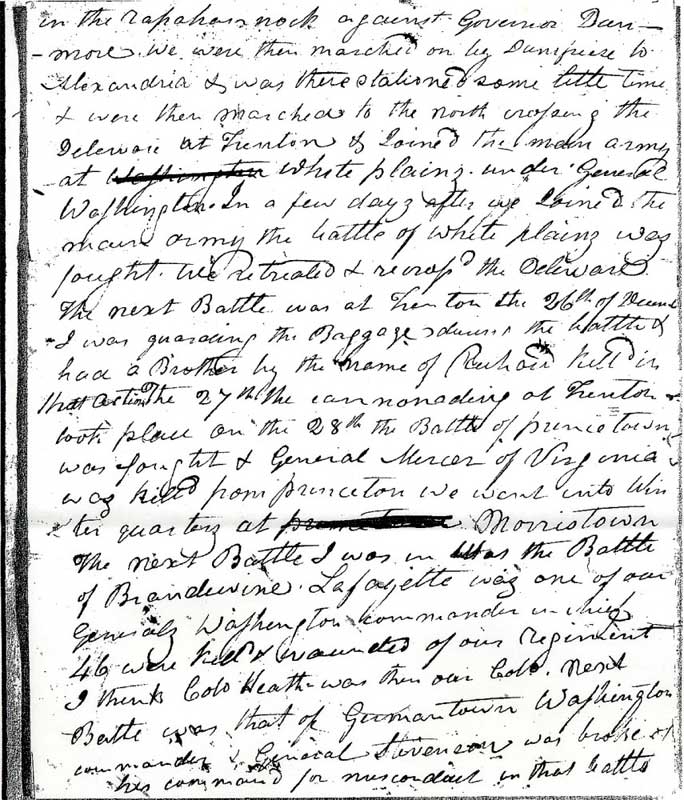 in the rapahasnock against Governor Dun-
-more. We were then marched on by Dumfreese to
Alexandria & was there stationed some little time
& were then marched to the north crossing the
Deleware at Trenton & Joined the main army
at Washington White plainz under General
Washington. In a few dayz after we Joined the
main army the battle of White plainz was
fought. We retreated & recrosd the Deleware
The next Battle was at Trenton the 26th of
I was guarding the Baggage during the battle &
had a Brother by the name of Richard kill'd in
that action The 27th the cannonading at Trenton
took place on the 28th the Battle of princetown
was fought & General Mercer of Virginia
waz killd from princeton we went into Win
ter quarterz at Morristown
The next Battle I was in was the Battle
of Brandewine. Lafayette waz one of our
Generalz Washington commander in chief
46 were kill'd & wounded of our regiment
I think Colo Heath was then our Colo. Next
Battle was that of Germantown Washington
commander & General Stevenson was broke of
his command for misconduct in that battle